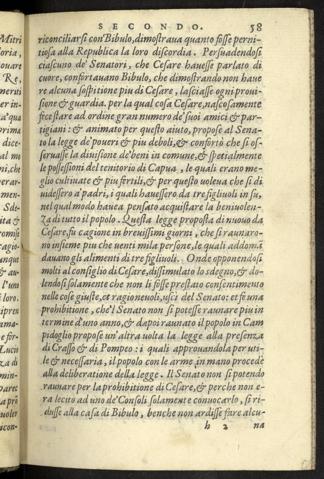 SECONDO. 58
riconciliarsi con Bibulo, dimostraua quanto fosse perni-
tiosa alla Republica la loro discordia. Persuadendosi
ciascuno de' Senatori, che Cesare hauesse parlato di
cuore, confortauano Bibulo, che dimostrando non haue
re alcuna sospitione piu di Cesare, lasciasse ogni proui-
sione & guardia. per la qual cosa Cesare, nascosamente
fece stare ad ordine gran numero de' suoi amici & par-
tigiani: & animato per questo aiuto, propose al Sena-
to la legge de' poueri & piu deboli, & confortò che si os-
seruasse la diuisione de' beni in comune, & spetialmente
le possessioni del tenitorio di Capua, le quali erano me-
glio cultiuate & piu fertili, & per questo uoleua che si di
uidessero a' padri, i quali hauessero da tre figliuoli in su,
nel qual modo haueua pensato acquistare la beniuolen-
za di tutto il popolo. Questa legge proposta di nuouo da
Cesare, fu cagione in breuissimi giorni, che si raunaro-
no insieme piu che uenti mila persone, le quali addoman
dauano gli alimenti di tre figliuoli. Onde opponendosi
molti al consiglio di Cesare, dissimulato lo sdegno, & do-
lendosi solamente che non li fosse prestato consentimento
nelle cose giuste, et ragioneuoli, uscì del Senato: et fè una
prohibitione, che'l Senato non si potesse raunare piu in
termine d'uno anno, & dapoi raunato il popolo in Cam
pidoglio propose un'altra uolta la legge alla presenza
di Crasso & di Pompeo: i quali approuandola per uti-
le & necessaria, il popolo con le arme in mano procedè
alla deliberatione della legge. Il Senato non si potendo
raunare per la prohibitione di Cesare, & perche non e-
ra lecito ad uno de' Consoli solamente conuocarlo, si ri-
dusse alla casa di Bibulo, benche non ardisse fare alcu-
h 2 na